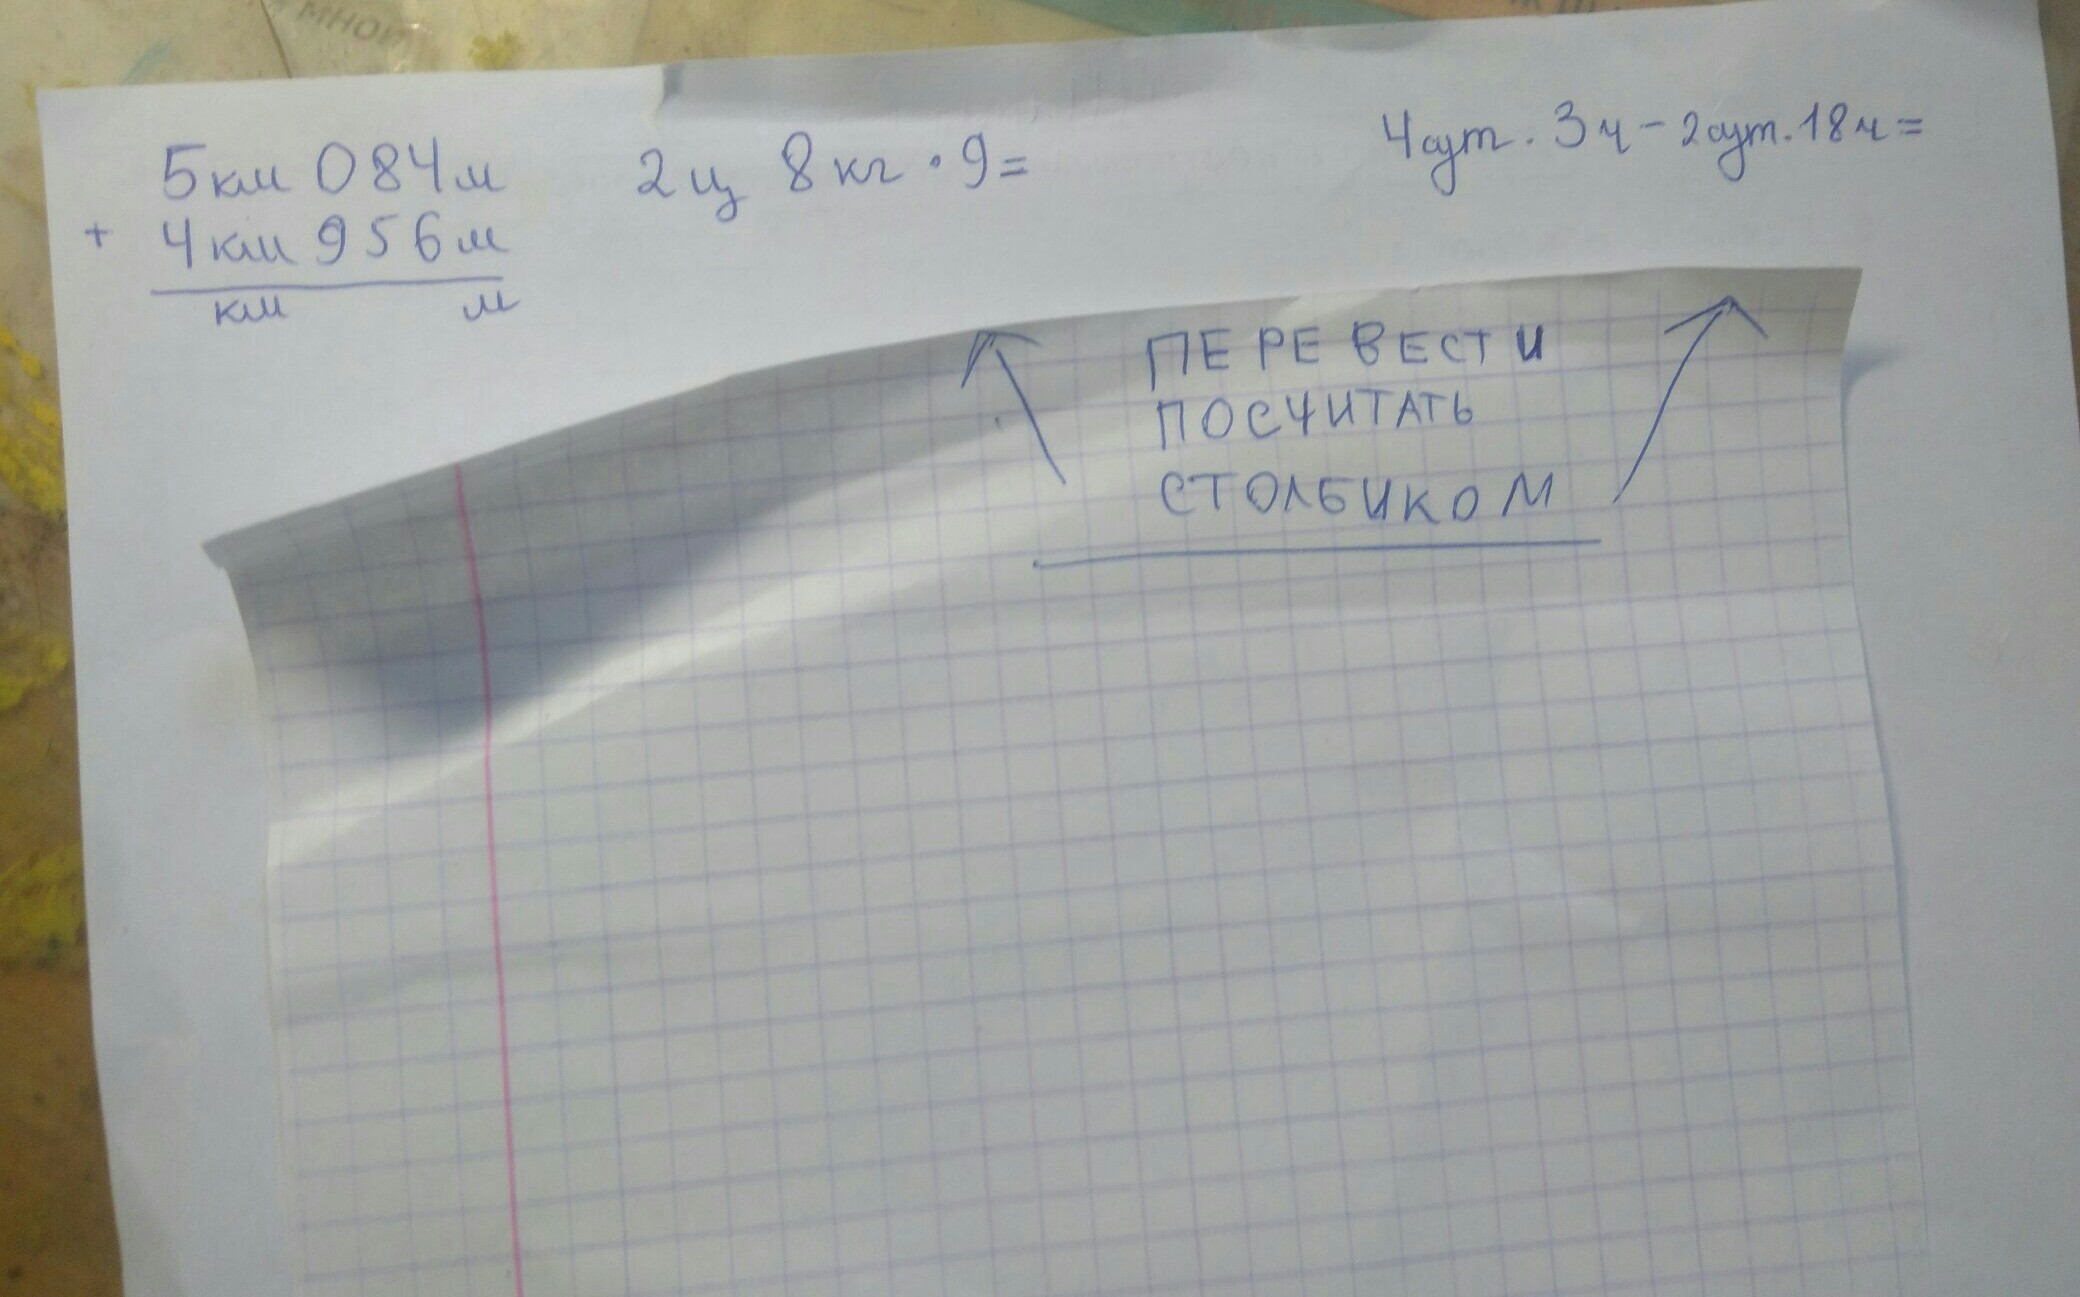 мной
5км 084м
+ 4км 956м
км м
2ц 8кг · 9 =
4сут. 3ч - 2сут. 18ч =
ПЕРЕВЕСТИ
ПОСЧИТАТЬ
СТОЛБИКОМ